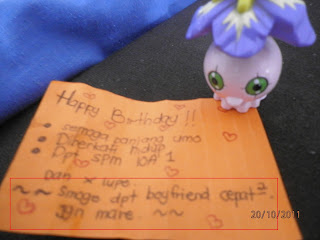 Happy Birthday !!
• semoga panjang umo
• Diberkati hidup
• Dpt SPM 10A 1
Dan x lupo
~~ Smoge dpt boyfriend cepat²
Jgn mare ~~
20/10/2011